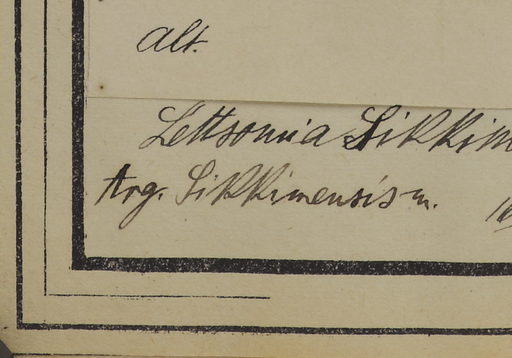 alt.
Lettsomia Sikkim
Arg. Sikkimensis m.